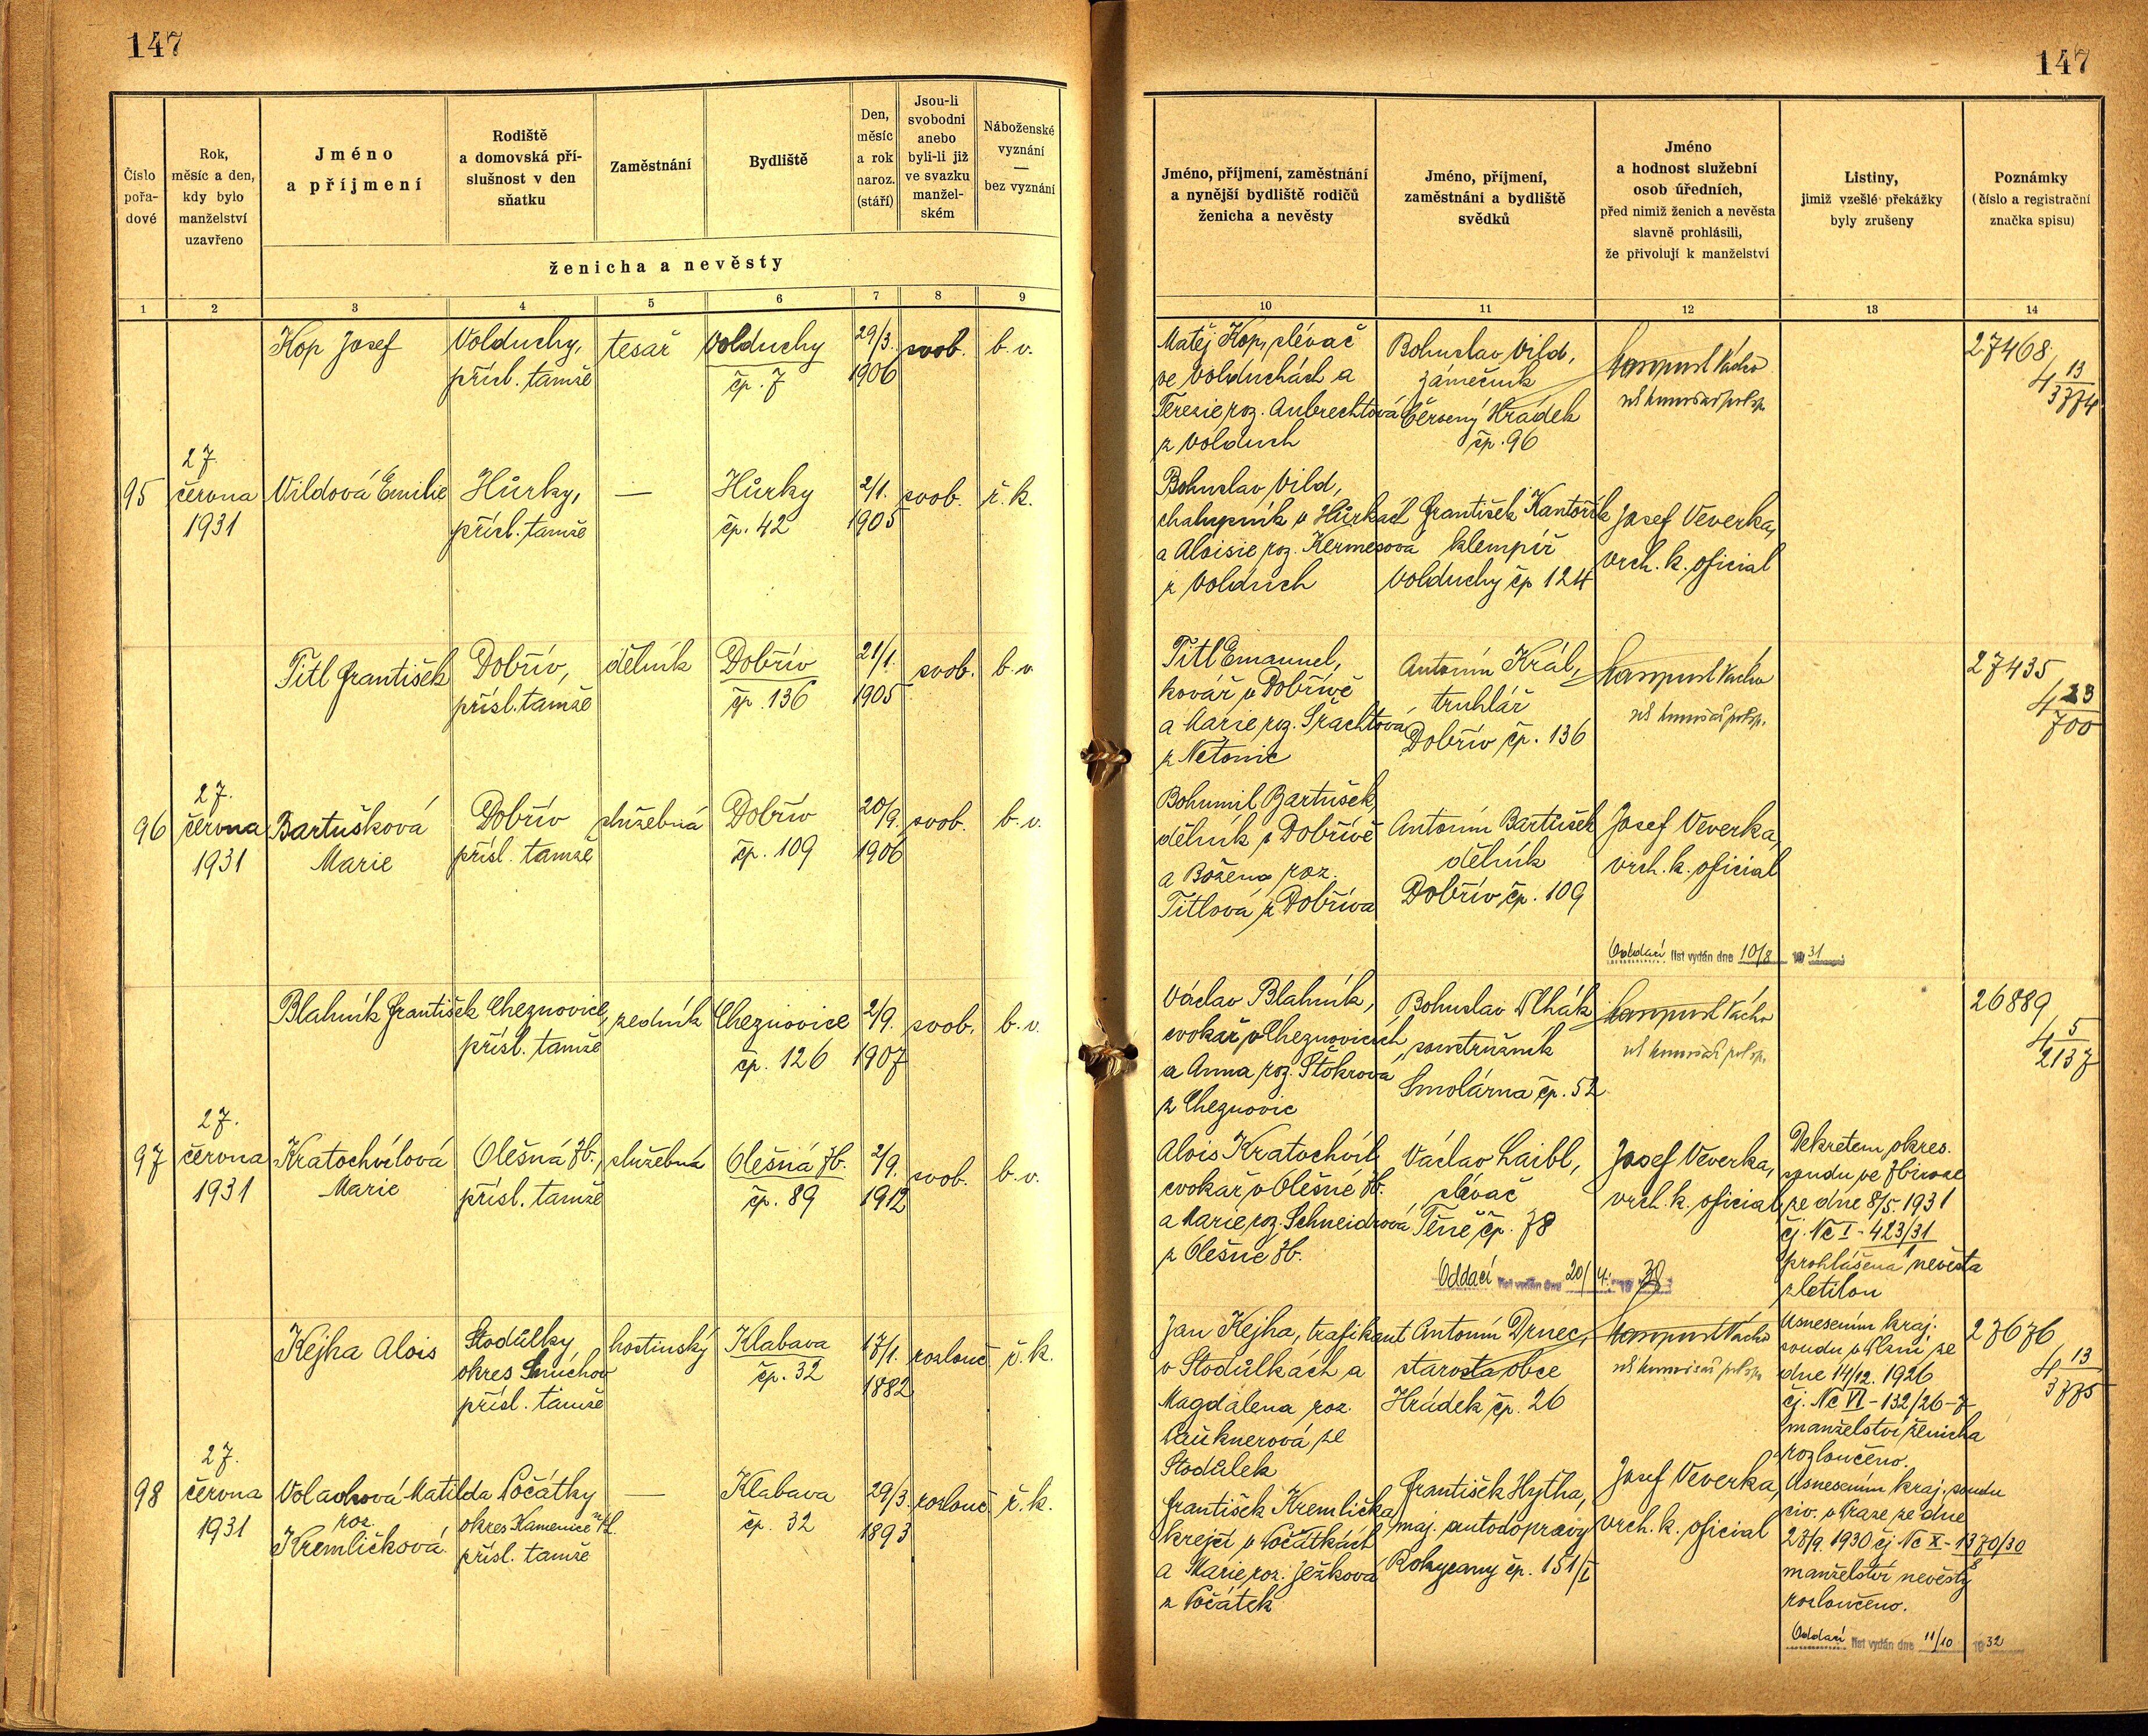 147
Číslo
pořa-
dové
Rok,
měsíc a den,
kdy bylo
manželství
uzavřeno
Jméno
a příjmení
Rodiště
a domovská pří-
slušnost v den
sňatku
Zaměstnání
Bydliště
Den,
měsíc
a rok
naroz.
(stáří)
Jsou-li
svobodni
anebo
byli-li již
ve svazku
manžel-
ském
Náboženské
vyznání
—
bez vyznání
ženicha a nevěsty
1 2 3 4 5 6 7 8 9
Kop Josef
Volduchy,
přísl. tamže
tesař
Volduchy
čp. 7
29/3.
1906
svob.
b. v.
95
27.
června
1931
Vildová Emilie
Hůrky,
přísl. tamže
—
Hůrky
čp. 42
2/1.
1905
svob.
ř. k.
Titl František
Dobřív,
přísl. tamže
dělník
Dobřív
čp. 136
21/1.
1905
svob.
b. v.
96
27.
června
1931
Bartušková
Marie
Dobřív
přísl. tamže
služebná
Dobřív
čp. 109
20/9.
1906
svob.
b. v.
Blahník František
Cheznovice,
přísl. tamže
zedník
Cheznovice
čp. 126
2/9.
1907
svob.
b. v.
97
27.
června
1931
Kratochvílová
Marie
Olešná Zb.,
přísl. tamže
služebná
Olešná Zb.
čp. 89
2/9.
1912
svob.
b. v.
Kejha Alois
Stodůlky
okres Smíchov
přísl. tamže
hostinský
Klabava
čp. 32
17/1.
1882
rozlouč
ř. k.
98
27.
června
1931
Matilda
roz.
Kremličková
Počátky
okres Kamenice n/L.
přísl. tamže
—
Klabava
čp. 32
29/3.
1893
rozlouč
ř. k.
147
Jméno, příjmení, zaměstnání
a nynější bydliště rodičů
ženicha a nevěsty
Jméno, příjmení,
zaměstnání a bydliště
svědků
Jméno
a hodnost služební
osob úředních,
před nimiž ženich a nevěsta
slavně prohlásili,
že přivolují k manželství
Listiny,
jimiž vzešlé překážky
byly zrušeny
Poznámky
(číslo a registrační
značka spisu)
10 11 12 13 14
Matěj Kop, slévač
ve Volduchách a
Terezie roz. Aubrechtová
z Volduch
Bohuslav Vild,
zámečník
Červený Hrádek
čp. 96
27468
4 13
3774
Bohuslav Vild,
chalupník v Hůrkách
a Aloisie roz. Kermesova
z Volduch
František Kantořík
klempíř
Volduchy čp 124
Josef Veverka,
vrch. k. oficial
Titl Emanuel,
kovář v Dobřívě
a Marie roz. Šrachtová
z Netonic
Antonín Král,
truhlář
Dobřív čp. 136
27435
4 23
700
Bohumil Bartušek,
dělník v Dobřívě
a Božena roz.
Titlová z Dobříva
Antonín Bartušek
dělník
Dobřív čp. 109
Josef Veverka,
vrch. k. oficial
Oddací list vydán dne 10/8 19 31
Václav Blahník,
cvokař v Cheznovicích
a Anna roz. Štokrová
z Cheznovic
Bohuslav
soustružník
Smolárna čp. 52
26889
4 5
2137
Alois Kratochvíl
cvokař v Olešné Zb.
a Marie roz. Schneidrová
z Olešné Zb.
Václav Laibl,
slévač
Těně čp. 78
Josef Veverka,
vrch. k. oficial
Dekretem okres.
soudu ve Zbiroze
ze dne 8/5. 1931
čj. Nc I - 423/31
1
prohlášena nevěsta
zletilou
Oddací list vydán dne 20/4. 19 38
Jan Kejha, trafikant
v Stodůlkách a
Magdalena roz.
ze
Stodůlek
Antonín Drnec,
starosta obce
Hrádek čp. 26
Usnesením kraj.
soudu v Plzni ze
dne 14/12. 1926
čj. Nc VI - 132/26-7
manželství ženicha
rozloučeno.
27676
4 13
3775
František Kremlička
krejčí v Počátkách
a Marie roz. Ježková
z Počátek
František Hytha,
maj. autodopravy
Rokycany čp. 151/I
Josef Veverka,
vrch. k. oficial
Usnesením kraj. soudu
civ. v Praze ze dne
28/9. 1930 čj Nc X - 1370/30
8
manželství nevěsty
rozloučeno.
Oddací list vydán dne 11/10 19 32